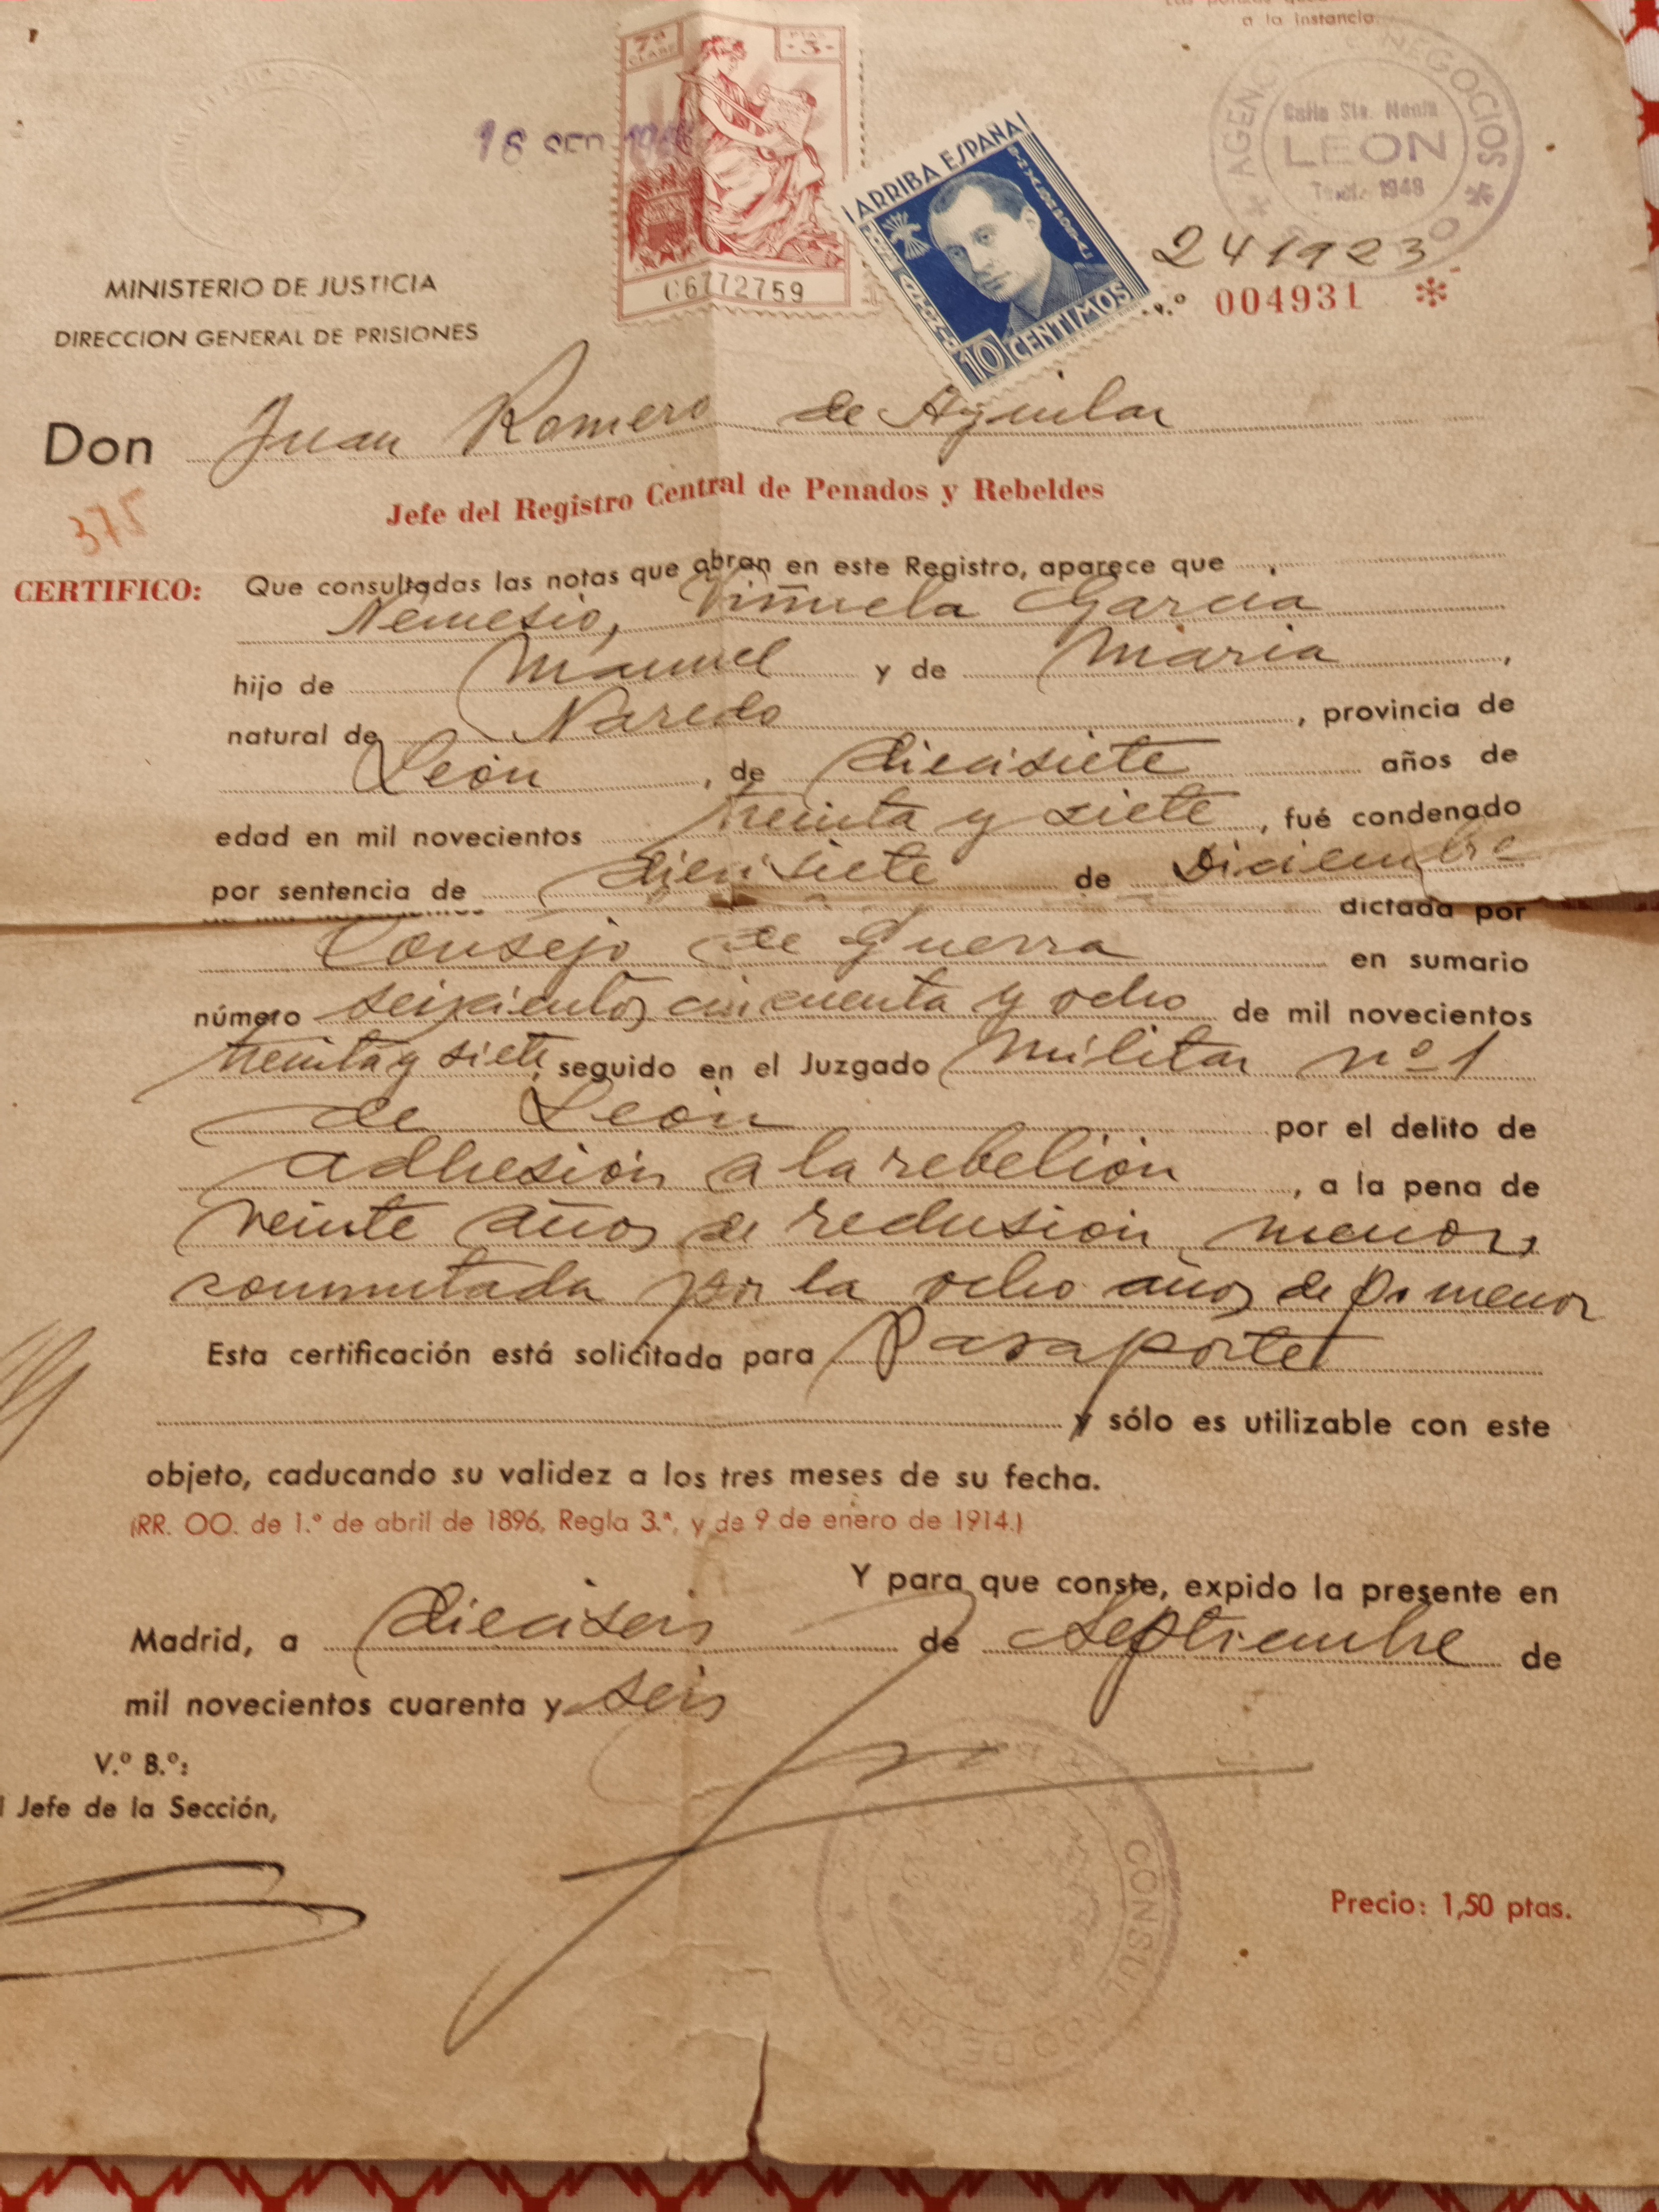 a la instancia.
7ª CLASE
PTAS -3-
C6772759
18 SEP 194
ARRIBA ESPAÑA
JOSE ANTONIO
10 CENTIMOS
AGENCIA NEGOCIOS
Calle Sta. Nonia
LEON
Teléf. 1948
241923
N.º 004931 *
MINISTERIO DE JUSTICIA
DIRECCION GENERAL DE PRISIONES
Don Juan Romero de Aguilar
Jefe del Registro Central de Penados y Rebeldes
375
CERTIFICO: Que consultadas las notas que obran en este Registro, aparece que
Nemesio, Viñuela Garcia
hijo de Manuel y de Maria,
natural de Naredo, provincia de
León, de diecisiete años de
edad en mil novecientos treinta y siete, fué condenado
por sentencia de diecisiete de Diciembre
dictada por
Consejo de Guerra en sumario
número seixcientos cincuenta y ocho de mil novecientos
treinta y siete, seguido en el Juzgado Militar nº 1
de León por el delito de
adhesión a la rebelión, a la pena de
veinte años de reclusión menor,
conmutada por la ocho años de p. menor
Esta certificación está solicitada para Pasaporte
y sólo es utilizable con este
objeto, caducando su validez a los tres meses de su fecha.
(RR. OO. de 1.º de abril de 1896, Regla 3.ª, y de 9 de enero de 1914.)
Y para que conste, expido la presente en
Madrid, a dieciseis de Septiembre de
mil novecientos cuarenta y seis
V.º B.º:
l Jefe de la Sección,
CONSULADO DE CHILE
Precio: 1,50 ptas.